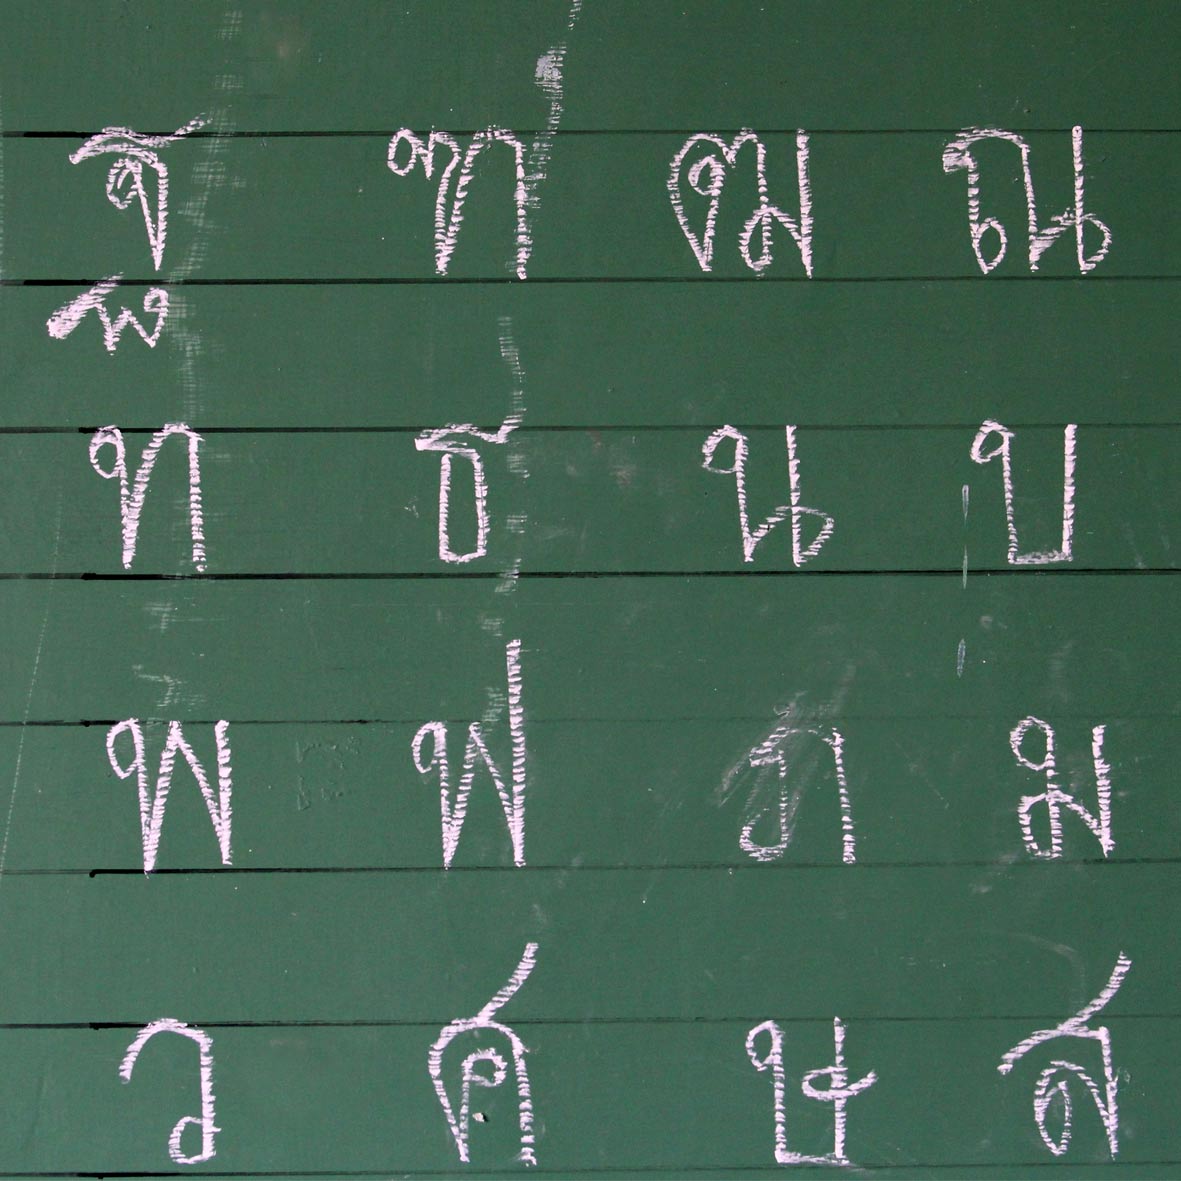 ฐ ฑ ฒ ณ
ท ธ น บ
พ ฟ ภ ม
ว ศ ษ ส